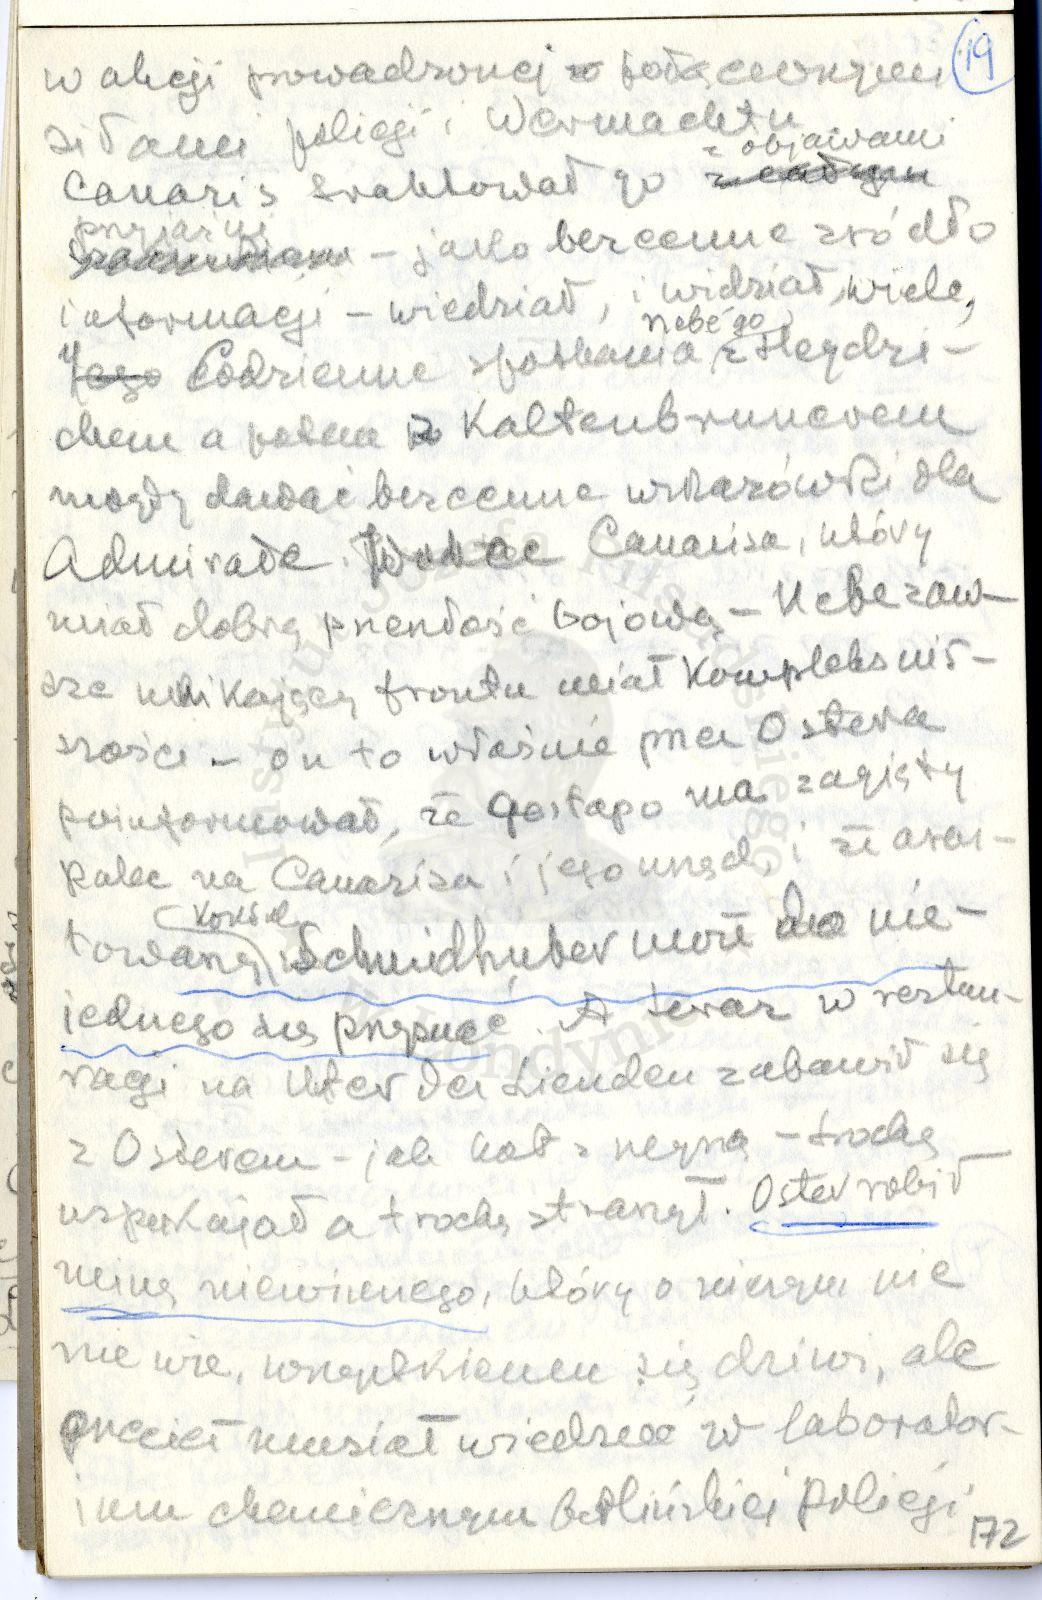 19
w akcji prowadzonej połączonymi
siłami policji i Wermachtu
z objawami
Canaris traktował go z całym
przyjaźni
szacunkiem – jako bezcenne źródło
informacji – wiedział, i widział, wiele,
Nebe'go
Jego Codzienne spotkania z Heydri-
chem a potem z Kaltenbrunerem
mogły dawać bezcenne wskazówki dla
Admirała. Wobec Canarisa, który
miał dobrą przeszłość bojową – Nebe zaw-
sze unikający frontu miał kompleks niż-
szości – on to właśnie przez Ostera
poinformował, że Gestapo ma zagięty
palec na Canarisa i jego urząd, i że aresz-
konsul
towany Schmidhuber może do nie-
jednego się przyznać. A teraz w restau-
racji na Unter den Linden zabawił się
z Osterem – jak kot z myszą – trochę
uspokajał a trochę straszył. Oster robił
minę niewinnego, który o niczym nic
nie wie, wszystkiemu się dziwi, ale
przecież musiał wiedzieć że w laborator-
ium chemicznym berlińskiej policji
172
Instytut Józefa Piłsudskiego w Londynie